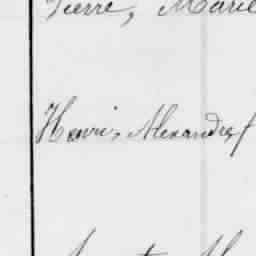 Pierre, Marie
Henri, Alexandre,